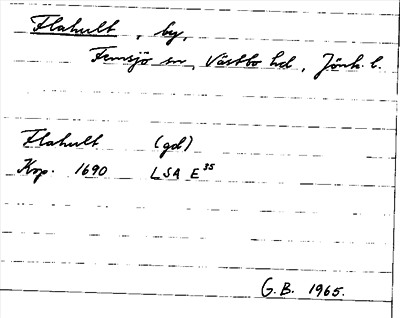 Flahult, by,
Femsjö sn, Västbo hd, Jönk. l.
Flahult (gd)
Kop. 1690 LSA E³⁵
G.B. 1965.